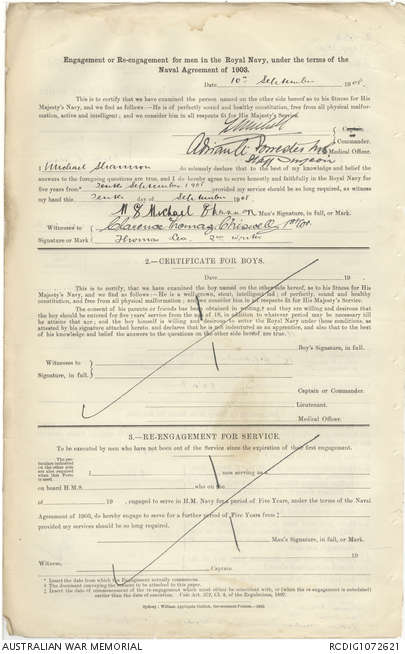 Engagement or Re-engagement for men in the Royal Navy, under the terms of the
Naval Agreement of 1903.
Date 10th September 1908.
This is to certify that we have examined the person named on the other side hereof as to his fitness for His
Majesty's Navy, and we find as follows:—He is of perfectly sound and healthy constitution, free from all physical mal-
formation, active and intelligent; and we consider him in all respects fit for His Majesty's Service.
Captain
or
Commander.
Medical Officer.
Staff Surgeon
I Michael Shannon do solemnly declare that to the best of my knowledge and belief the
answers to the foregoing questions are true, and I do hereby agree to serve honestly and faithfully in the Royal Navy for
five years from* Tenth September 1908 provided my service should be so long required, as witness
my hand this Tenth day of September 1908.
Michael Shannon Man's Signature, in full, or Mark.
Witnesses to
Signature or Mark
Clarence Thomas
Thomas 2nd Writer
2.—CERTIFICATE FOR BOYS.
Date 19
This is to certify, that we have examined the boy named on the other side hereof as to his fitness for His
Majesty's Navy, and we find as follows:—He is a well-grown, stout, intelligent lad; of perfectly sound and healthy
constitution, and free from all physical malformation; and we consider him in all respects fit for His Majesty's Service.
The consent of his parents or friends has been obtained in writing,† and they are willing and desirous that
the boy should be entered for five years' service from the age of 18, in addition to whatever period may be necessary till
he attains that age; and the boy himself is willing and desirous to enter the Royal Navy under these conditions, as
attested by his signature attached hereto, and declares that he is not indentured as an apprentice, and also that to the best
of his knowledge and belief the answers to the questions on the other side hereof are true.
Boy's Signature, in full.
Witnesses to
Signature, in full.
Captain or Commander.
Lieutenant.
Medical Officer.
3.—RE-ENGAGEMENT FOR SERVICE.
To be executed by men who have not been out of the Service since the expiration of their first engagement.
I now serving as
on board H.M.S. who on the
of 19 , engaged to serve in H.M. Navy for a period of Five Years, under the terms of the Naval
Agreement of 1903, do hereby engage to serve for a further period of Five Years from‡
provided my services should be so long required.
Man's Signature, in full, or Mark.
19
Witness,
Captain
* Insert the date from which the Engagement actually commences.
† The document conveying the consent to be attached to this paper.
‡ Insert the date of commencement of the re-engagement which must either be coincident with, or (when the re-engagement is antedated)
earlier than the date of execution.
Sydney: William Applegate Gullick, Government Printer.
AUSTRALIAN WAR MEMORIAL
RCDIG1072621